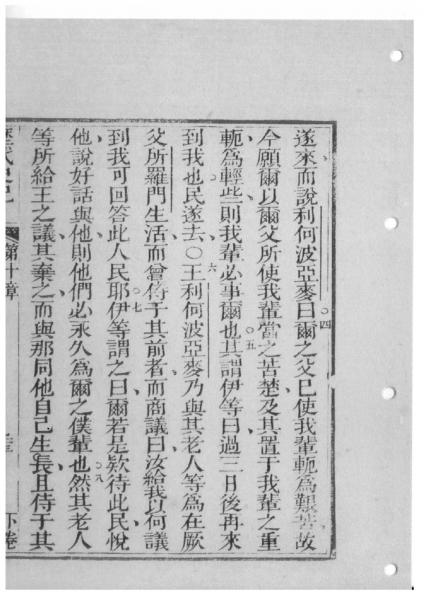 遂來而說利何波亞麥曰爾之父已使我輩軛爲艱苦故
四
今願爾以爾父所使我輩當之苦楚及其置于我輩之重
軛爲輕些則我輩必事爾也其謂伊等曰過三日後再來
五
到我也民遂去○王利何波亞麥乃與其老人等爲在厥
六
父所羅門生活而曾侍于其前者而商議曰汝給我以何議
到我可回答此人民耶伊等謂之曰爾若是欵待此民悅
七
他說好話與他則他們必永久爲爾之僕輩也然其老人
八
等所給王之議其棄之而與那同他自己生長且侍于其
第十章
下卷